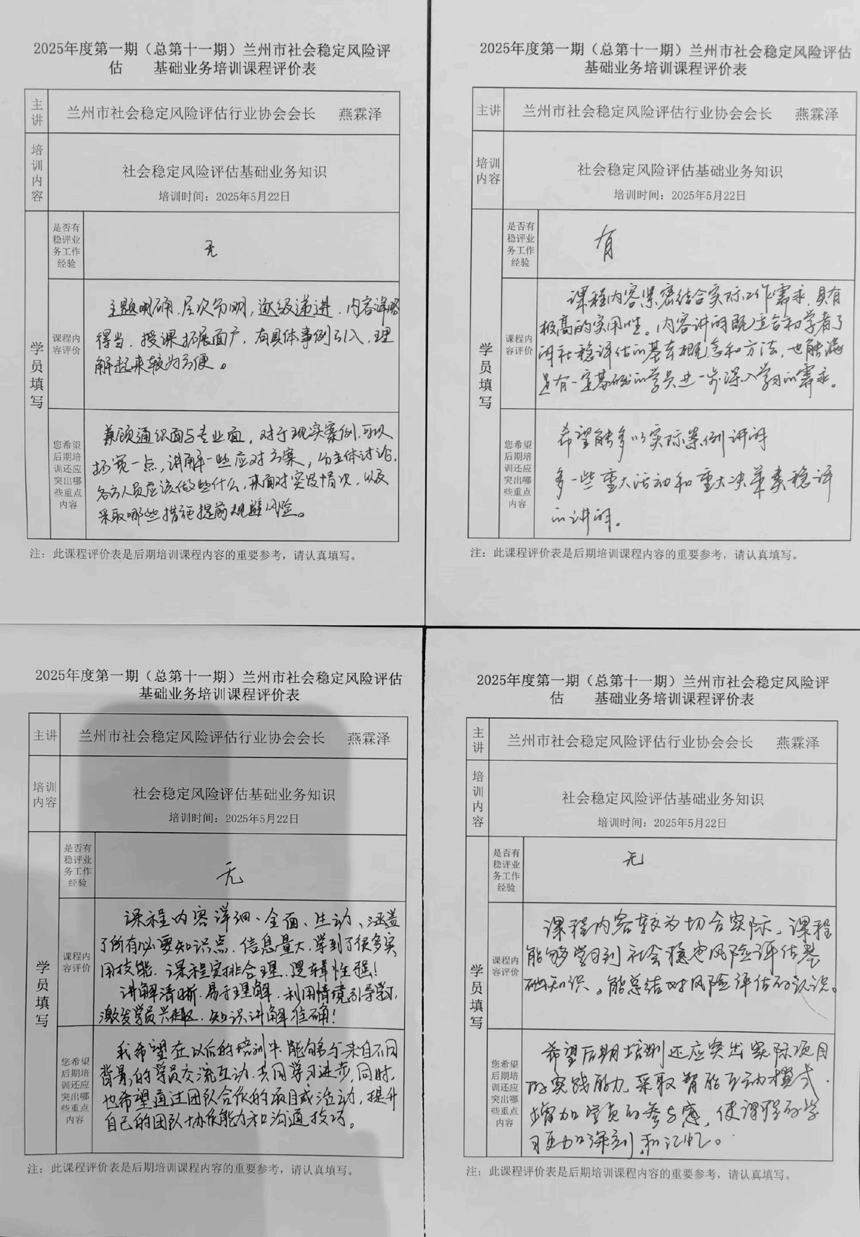 2025年度第一期（总第十一期）兰州市社会稳定风险评
估 基础业务培训课程评价表
主讲
兰州市社会稳定风险评估行业协会会长 燕霖泽
培训内容
社会稳定风险评估基础业务知识
培训时间：2025年5月22日
学员填写
是否有
稳评业
务工作
经验
无
课程内
容评价
主题明确、层次分明，逐级递进、内容详略
得当。授课拓展面广，有具体事例引入，理
解起来较为方便。
您希望
后期培
训还应
突出哪
些重点
内容
兼顾通识面与专业面，对于现实案例，可以
拓宽一点，讲解一些应对方案，分主体讨论，
各方人员应该做些什么，来面对突发情况，以及
采取哪些措施提前规避风险。
注：此课程评价表是后期培训课程内容的重要参考，请认真填写。
2025年度第一期（总第十一期）兰州市社会稳定风险评估
基础业务培训课程评价表
主讲
兰州市社会稳定风险评估行业协会会长 燕霖泽
培训
内容
社会稳定风险评估基础业务知识
培训时间：2025年5月22日
学员填写
是否有
稳评业
务工作
经验
有
课程内
容评价
课程内容紧密结合实际工作需求，具有
极高的实用性。内容讲解既适合初学者了
解社稳评估的基本概念和方法，也能满
足有一定基础的学员进一步深入学习的需求。
您希望
后期培
训还应
突出哪
些重点
内容
希望能多以实际案例讲解
多一些重大活动和重大决策类稳评
的讲解。
注：此课程评价表是后期培训课程内容的重要参考，请认真填写。
2025年度第一期（总第十一期）兰州市社会稳定风险评估
基础业务培训课程评价表
主讲
兰州市社会稳定风险评估行业协会会长 燕霖泽
培训
内容
社会稳定风险评估基础业务知识
培训时间：2025年5月22日
学员填写
是否有
稳评业
务工作
经验
无
课程内
容评价
课程内容详细、全面、生动、涵盖
了所有必要知识点、信息量大，学到了很多实
用技能。课程安排合理、逻辑性强！
讲解清晰、易于理解、利用情境引导学习，
激发学员兴趣、知识讲解准确！
您希望
后期培
训还应
突出哪
些重点
内容
我希望在以后的培训中能够与来自不同
背景的学员交流互动，共同学习进步，同时，
也希望通过团队合作的项目或活动，提升
自己的团队协作能力和沟通技巧。
注：此课程评价表是后期培训课程内容的重要参考，请认真填写。
2025年度第一期（总第十一期）兰州市社会稳定风险评
估 基础业务培训课程评价表
主讲
兰州市社会稳定风险评估行业协会会长 燕霖泽
培训内容
社会稳定风险评估基础业务知识
培训时间：2025年5月22日
学员填写
是否有
稳评业
务工作
经验
无
课程内
容评价
课程内容较为切合实际，课程
能够学习到社会稳定风险评估基
础知识。能总结对风险评估的认识。
您希望
后期培
训还应
突出哪
些重点
内容
希望后期培训还应突出实际项目
的实践能力，采取智能互动模式，
增加学员的参与感，使课程的学
习更加深刻和记忆。
注：此课程评价表是后期培训课程内容的重要参考，请认真填写。